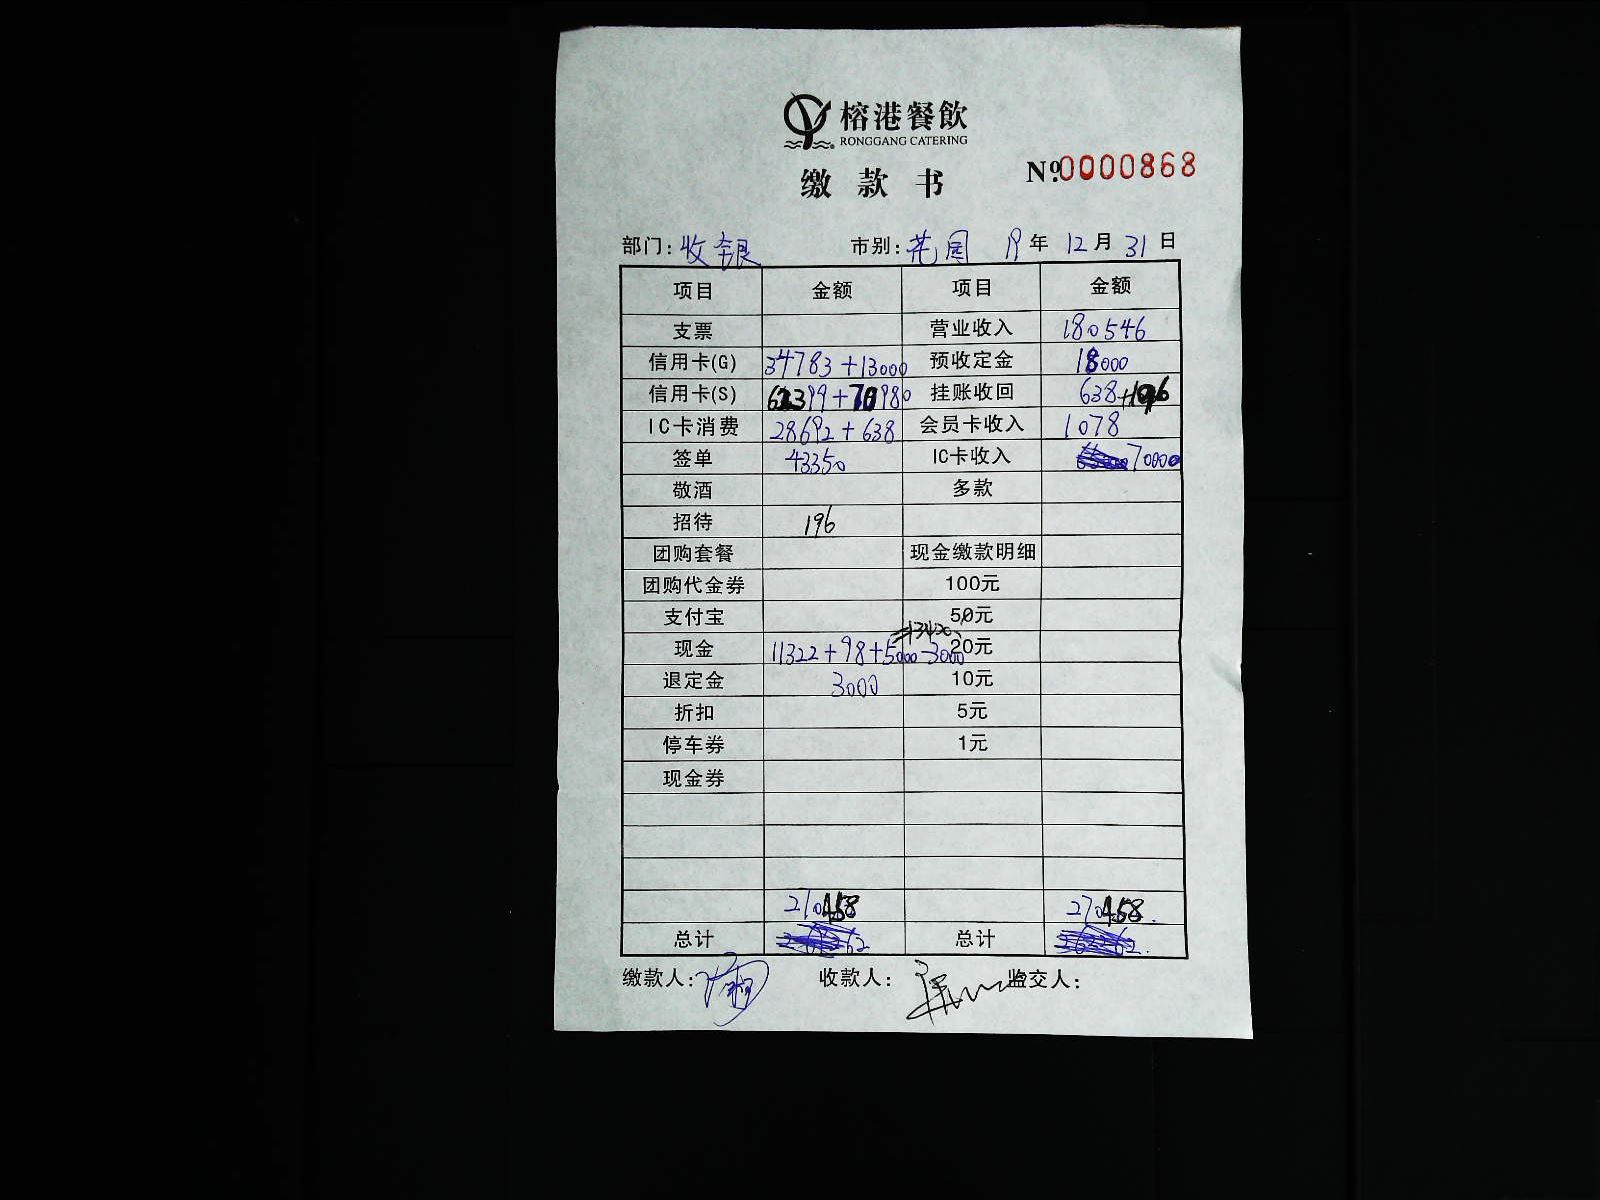 榕港餐飲
RONGGANG CATERING
缴款书
Nº.0000868
部门: 收银 市别: 花园 19年 12月 31日
项目 金额 项目 金额
支票 营业收入 180546
信用卡(G) 34783+13000 预收定金 18000
信用卡(S) 挂账收回 638+196
IC卡消费 28692+638 会员卡收入 1078
签单 43350 IC卡收入 70000
敬酒 多款
招待 196
团购套餐 现金缴款明细
团购代金券 100元
支付宝 50元
=13420
现金 11322+98+5000-3000 20元
退定金 3000 10元
折扣 5元
停车券 1元
现金券
270458 270458.
总计 总计
缴款人: 收款人: 监交人: